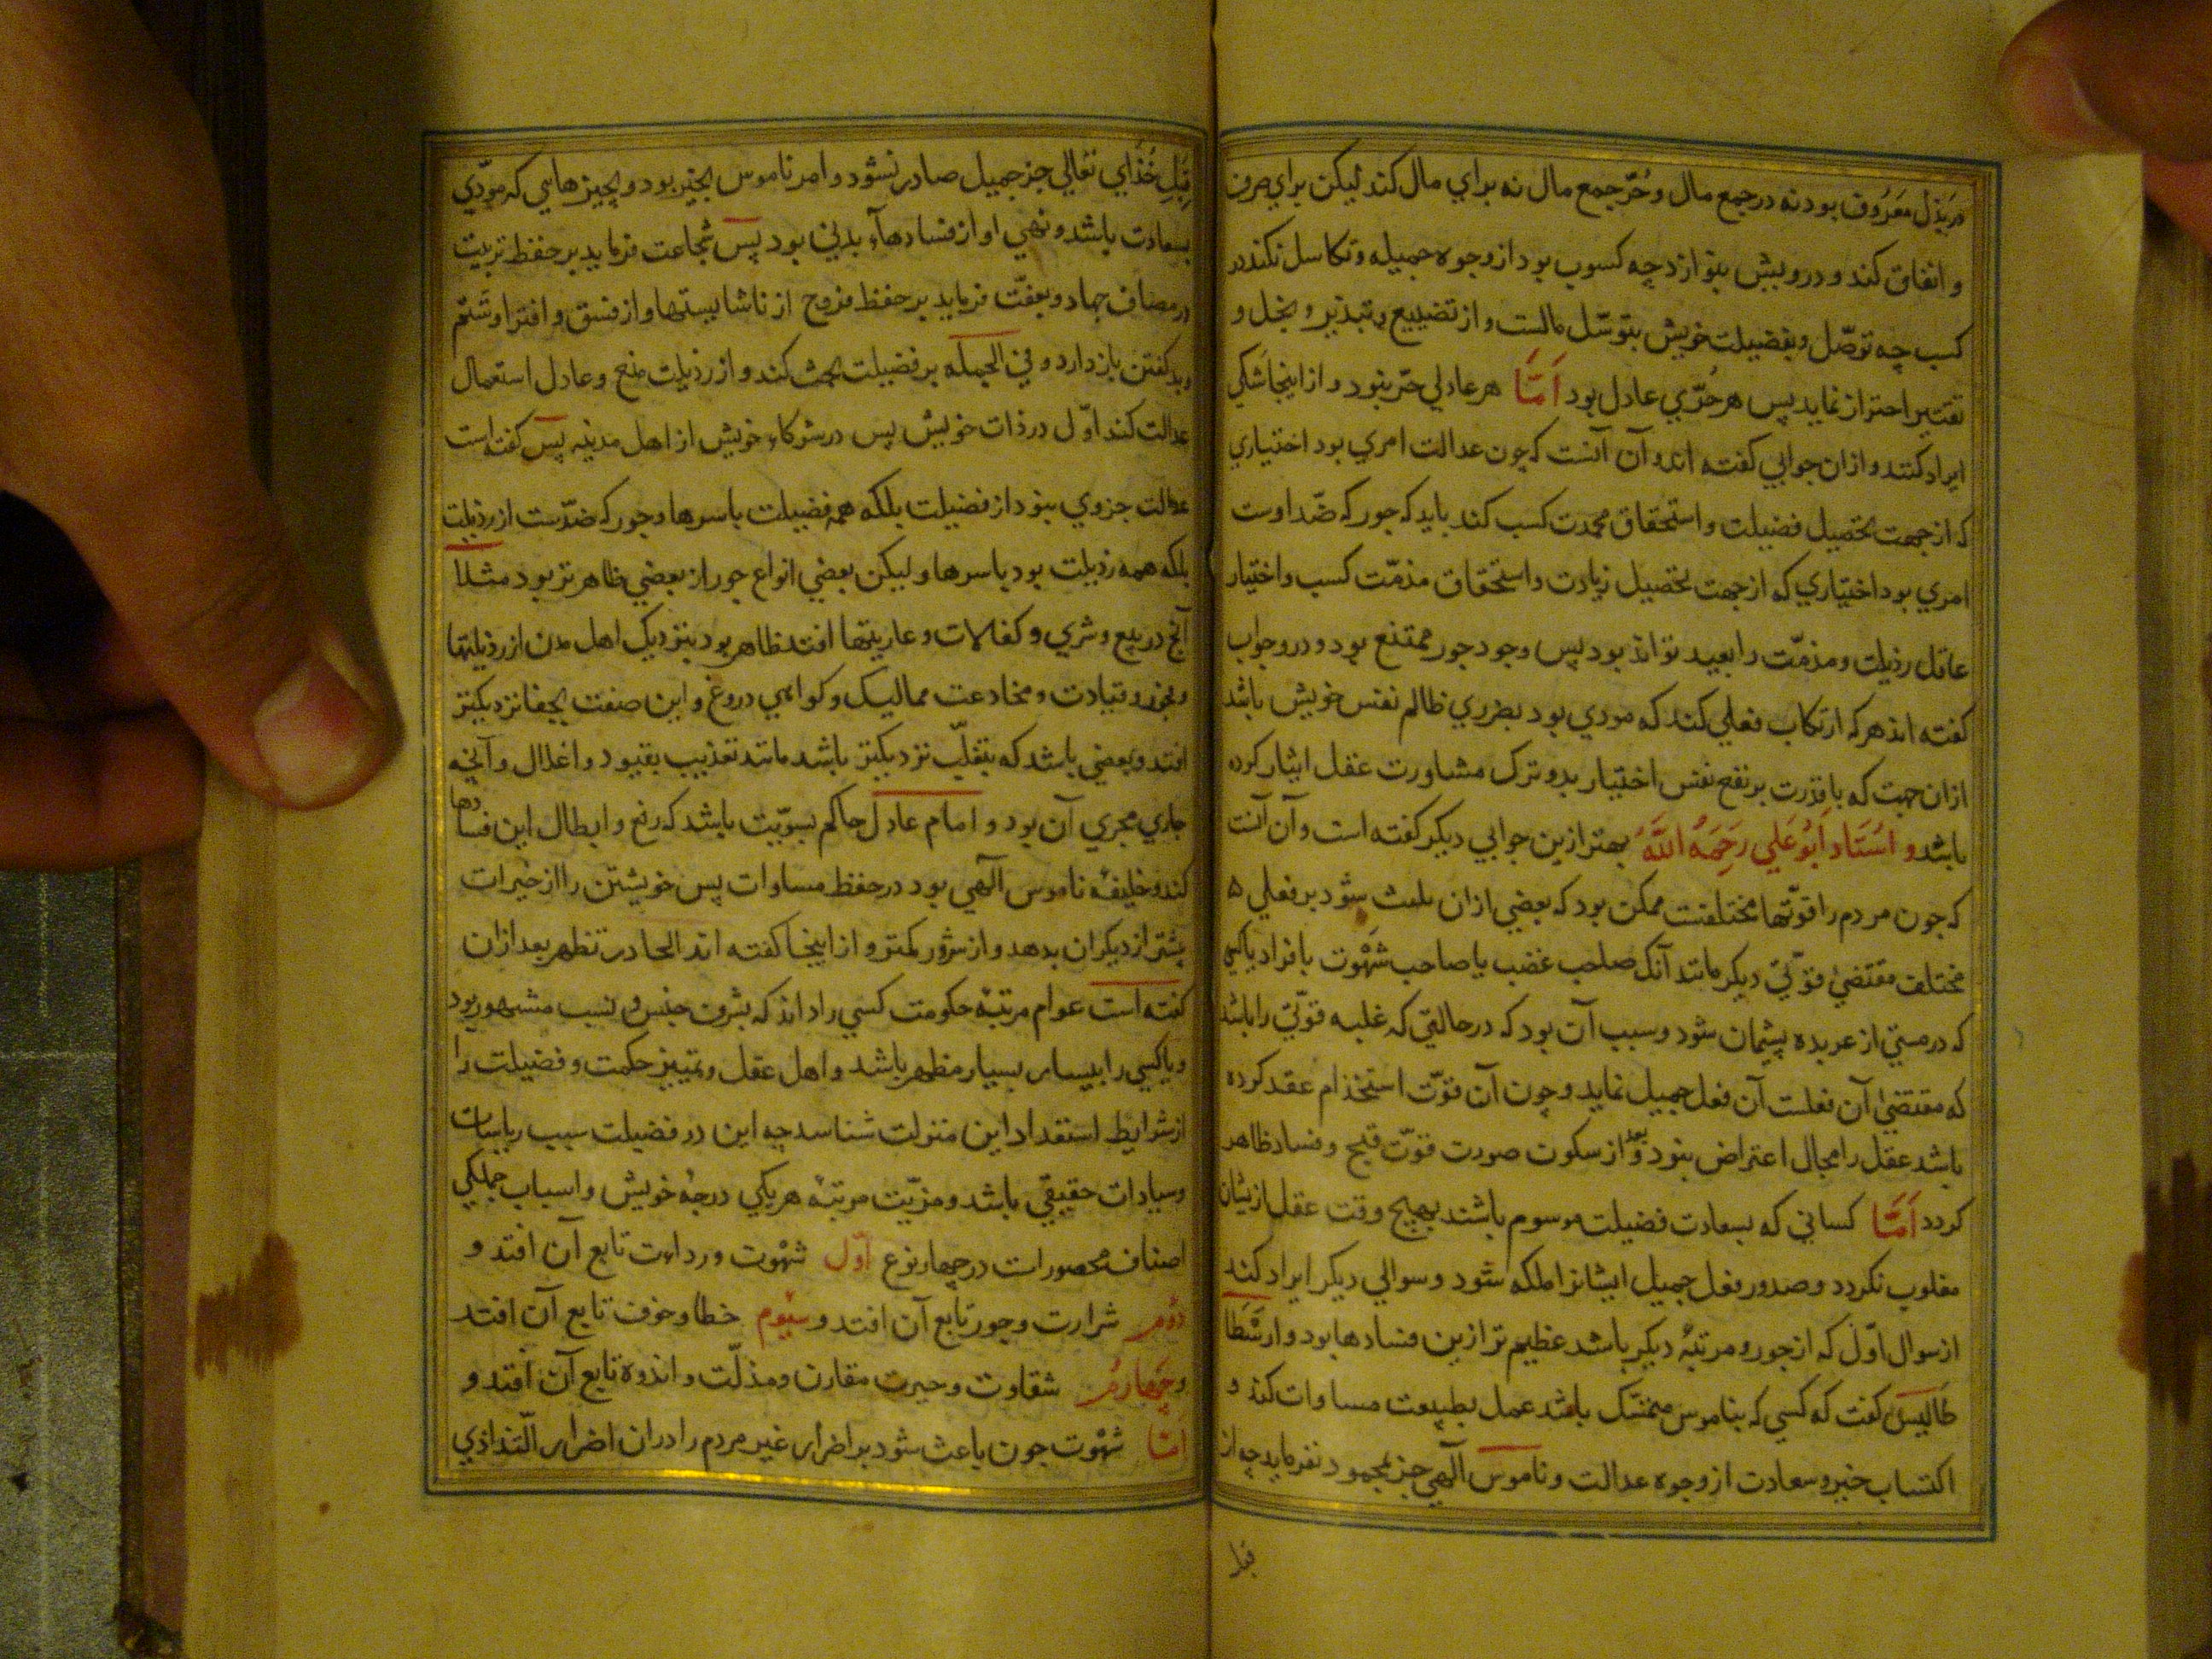 در بذل معروف بود نه در جمع مال و حرّ جمع مال نه براي مال کند ليکن براي صرف
و انفاق کند و درويش بنوازد چه کسوب بود از وجوه جميله و تکاسل نکند در
کسب چه توصّل و بفضيلت خويش بتوسّل مالست و از تضييع و تبذير و بخل و
تقتير احتراز نمايد پس هر حرّي عادل بود اَمَّا هر عادلي حرّ نبود و از اينجا شکي
ايراد کنند و ازان جوابي کفته اند و آن آنست که چون عدالت امري بود اختياري
که از جهت تحصيل فضيلت و استحقاق محمدت کسب کند بايد که جور که ضدّ اوست
امري بود اختياري که از جهت تحصيل زيادت و استحقاق مذمّت کسب و اختيار
عاقل رذيلت و مذمّت را بعيد تواند بود پس وجود جور ممتنع بود و در و جواب
کفته اند هر که ارتکاب فعلي کند که مودي بود بضرري ظالم نفس خويش باشد
ازان جهت که با قدرت بر نفع نفس اختيار بد و ترک مشاورت عقل ايثار کرده
باشد و اُستَاد اَبُو عَلي رَحِمَهُ اللّهُ بهتر ازين جوابي ديکر کفته است و آن آنست
که چون مردم را قوّتها مختلفست ممکن بود که بعضي ازان باعث شود بر فعلي
مختلف مقتضي قوّتي ديکر مانند آنک صاحب غضب يا صاحب شَهْوت با فراد يا کسي
که در مستي از عربده پشيمان شود و سبب آن بود که در حالتي که غلبه قوّتي را باشد
که مقتضي آن فعلست آن فعل جميل نمايد و چون آن قوّت استخدام عقد کرده
باشد عقل را مجال اعتراض نبود و بعد از سکون صورت قوّت قبح و فساد ظاهر
کردد اَمَّا کساني که بسعادت فضيلت موسوم باشند بهيچ وقت عقل ازيشان
مغلوب نکردد و صدور فعل جميل ايشانرا ملکه شود و سوالي ديکر ايراد کند
از سوال اوّل که از جور و مرتبهٔ ديکر باشد عظيم تر ازين فسادها بود و ارسْطَا
طَاليس کفت که کسي که بناموس متمسّک باشد عمل بطبيعت مساوات کند و
اکتساب خير و سعادت از وجوه عدالت و ناموس الٓهي جز بمحمود نفرمايد چه از
قبل خُدَاي تعالي جز جميل صادر نشود و امر ناموس بخير بود و بچيزهايي که مودّي
بسعادت باشد و نهي او از فسادهآء بدني بود پس شجاعت فرمايد بر حفظ ترتيب
در مصاف جهاد و بعفّت فرمايد بر حفظ فروج از ناشايستها و از فسق و افترا و شتم
و بد کفتن باز دارد و في الجمله بر فضيلت بحث کند و از رذيلت منع و عادل استعمال
عدالت کند اوّل در ذات خويش پس در شرکاء خويش از اهل مدينه پس کفته است
عدالت جزوي نبود از فضيلت بلکه همه فضيلت باسرها و جور که ضدّست از رذيلت
بلکه همه رذيلت بود باسرها و ليکن بعضي انواع جور از بعضي ظاهرتر بود مثلا
آنچ در بيع و شري و کفالات و عاريتها افتد ظاهر بود بنزديک اهل مدن از رذيلتها
و فجور و قيادت و مخادعت مماليک و کواهي دروغ و اين صنف بجفا نزديکتر
افتد و بعضي باشد که بتغلّب نزديکتر باشد مانند تعذيب بقيود و اغلال و آنچه
جاري مجري آن بود و امام عادل حاکم بسويّت باشد که رفع و ابطال اين فسادها
کند و خليفهٔ ناموس الٓهي بود در حفظ مساوات پس خويشتن را از خيرات
بيشتر از ديکران بدهد و از شرور کمتر و از اينجا کفته اند بعد ازان
کفته است عوام مرتبهٔ حکومت کسي را داند که بشرف جنس و نسب مشهور بود
و يا کسي را بيسار بسيار مظهر باشد و اهل عقل و تمييز حکمت و فضيلت را
از شرايط استعداد اين منزلت شناسد چه اين دو فضيلت سبب رياسات
و سيادات حقيقي باشد و مزيّت مرتبهٔ هر يکي درجهٔ خويش و اسباب جملکي
اصناف محصورات در چهار نوع اوّل شهْوت و رداءت تابع آن افتد و
دوُم شرارت و جور تابع آن افتد و سيُوم خطا و خوف تابع آن افتد
و چهارم شقاوت و حيرت مقارن و مذلّت و اندوه تابع آن افتد و
اَمَّا شهْوت چون باعث شود بر اضرار غير مردم را دران اضرار التذاذي